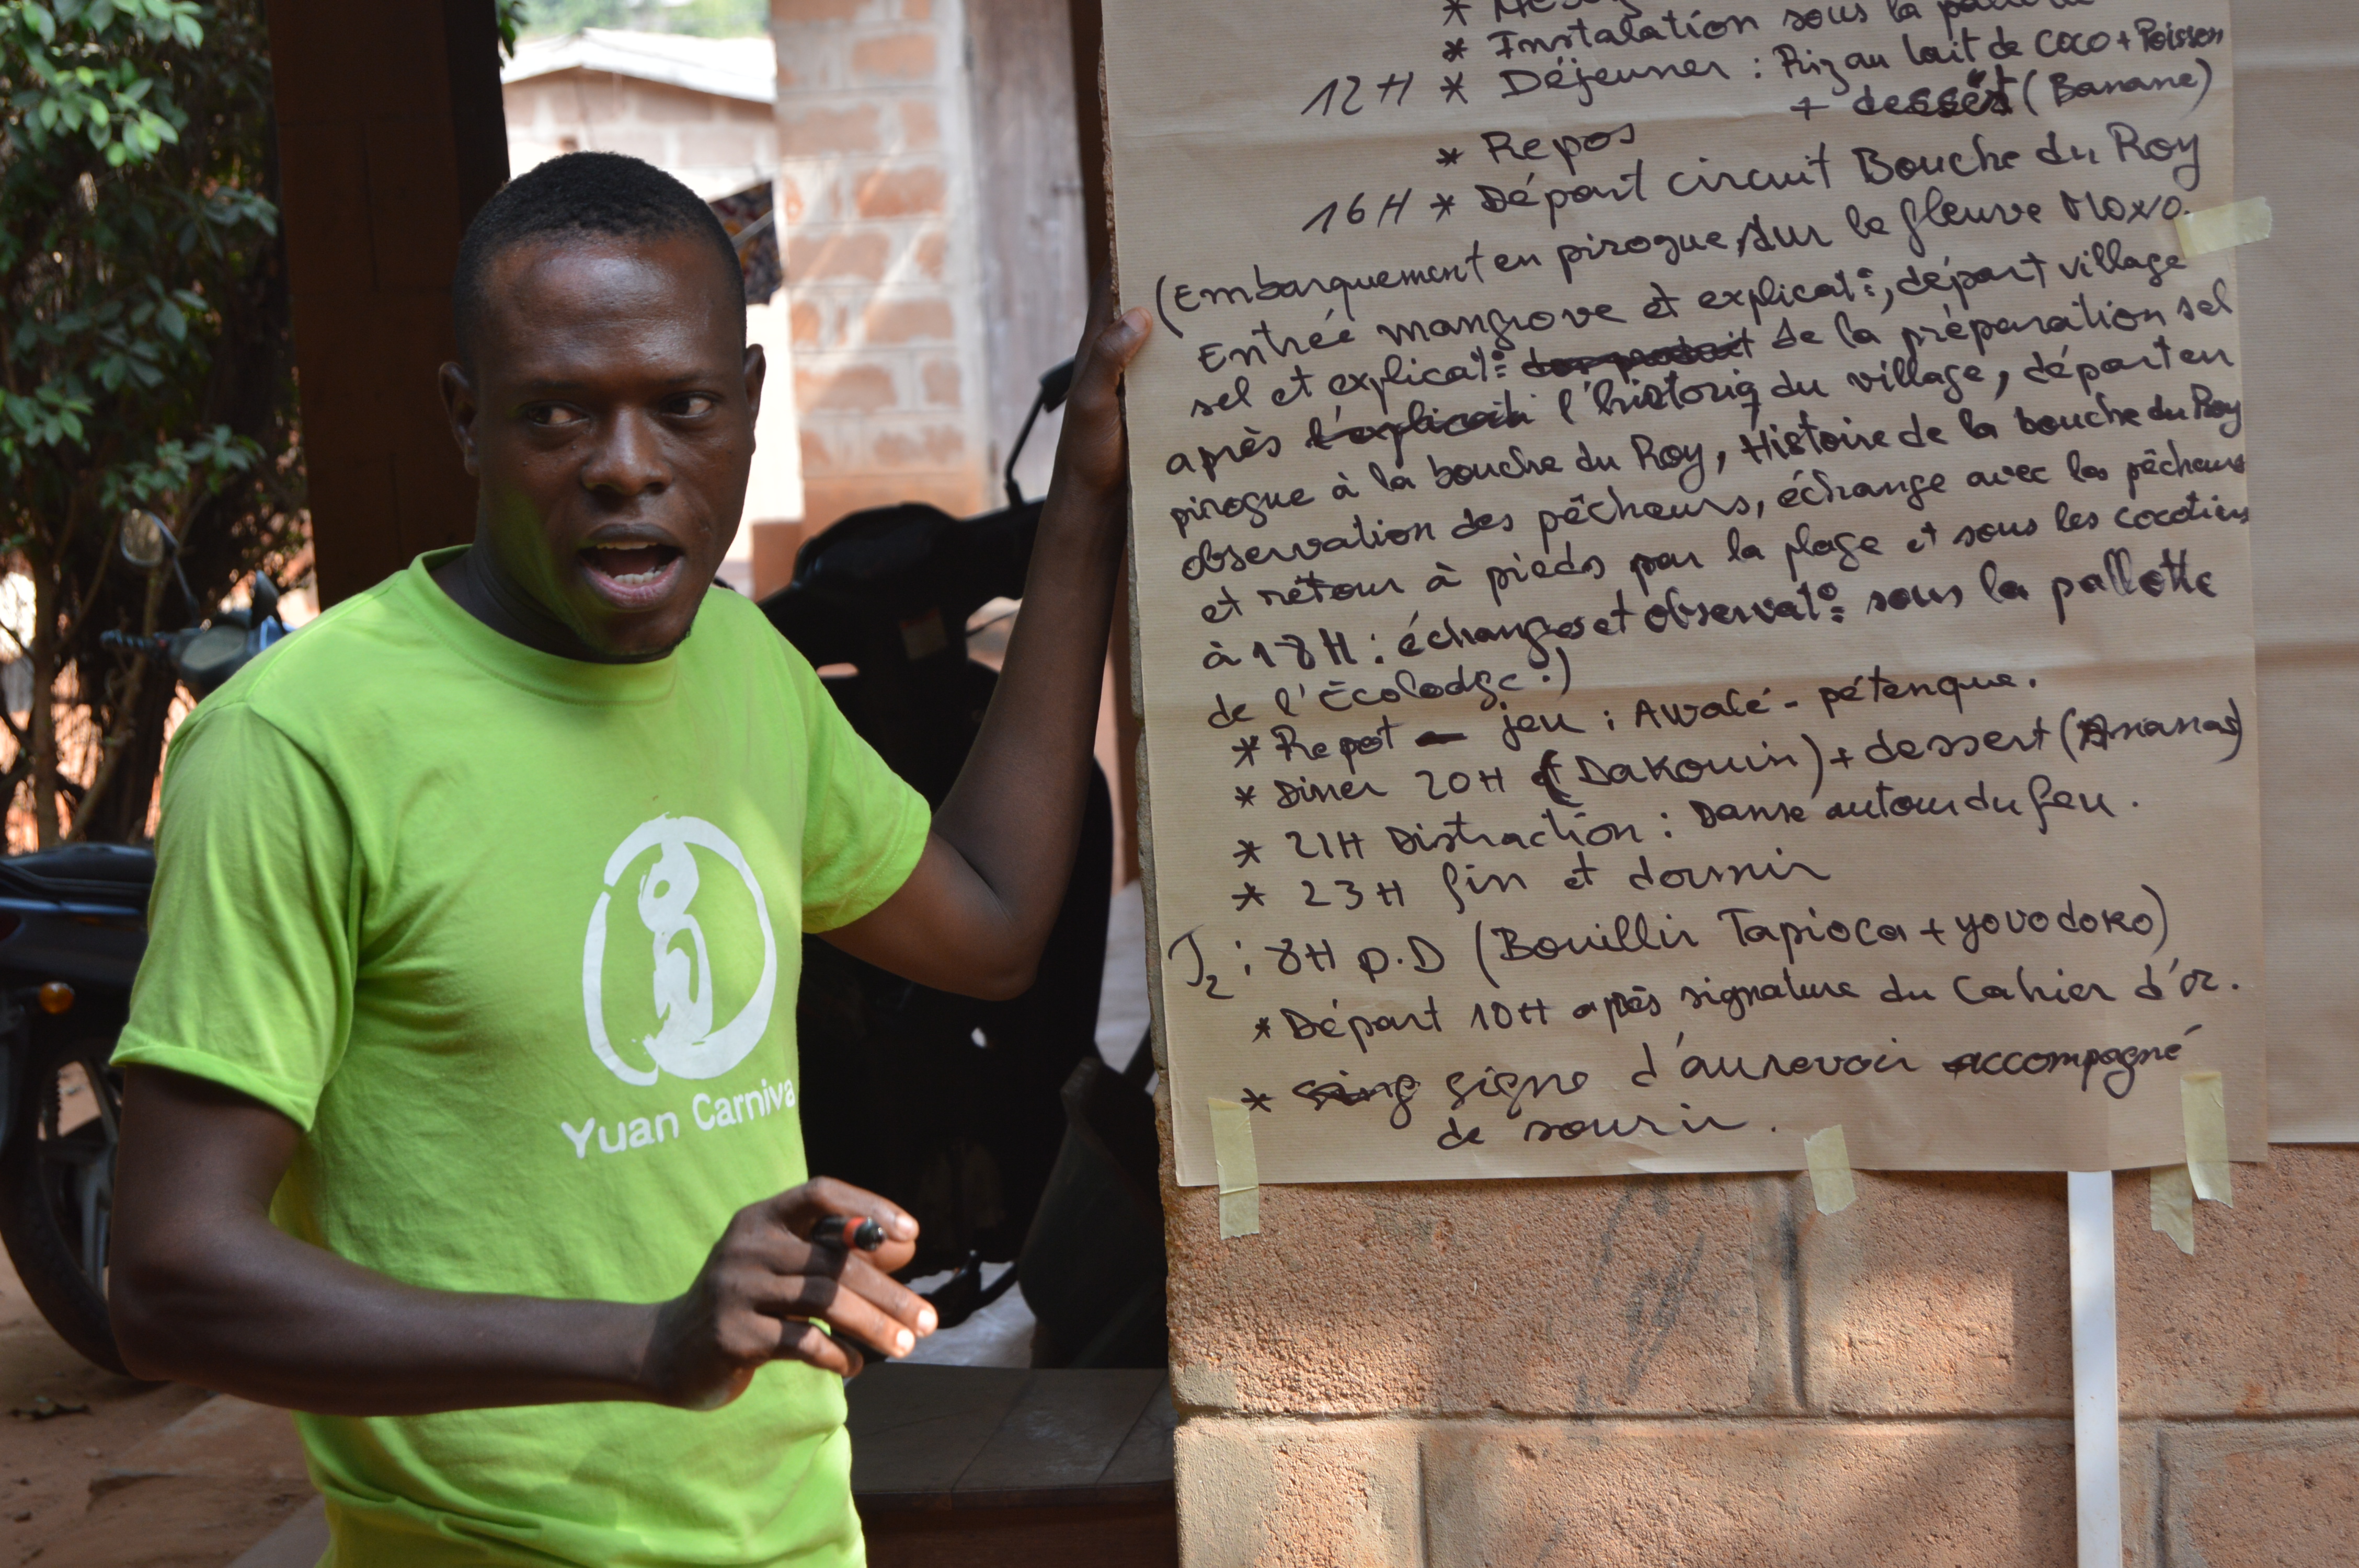 * Instalation sous la
12H * Déjeuner : Riz au lait de coco + Poisson
+ dessert (Banane)
* Repos
16H * Départ circuit Bouche du Roy
(Embarquement en pirogue sur le fleuve Mono.
Entrée mangrove et explicat°, départ village
sel et explicat° de la préparation sel
après l'historiq du village, départ en
pirogue à la bouche du Roy, Histoire de la bouche du Roy
observation des pêcheurs, échange avec les pêcheurs
et retour à pieds par la plage et sous les cocotiers
à 18H : échanges et observat° sous la pallotte
de l'Écolodge.)
* Repot - jeu : Awalé - pétenque.
* Diner 20H (Dakouin) + dessert (Ananas)
* 21H Distraction : Danse autour du feu.
* 23H fin et dormir
J2 : 8H p.D (Bouillir Tapioca + yovodoko)
* Départ 10H après signature du Cahier d'or.
* signe d'aurevoir accompagné
de sourir.
Yuan Carniva